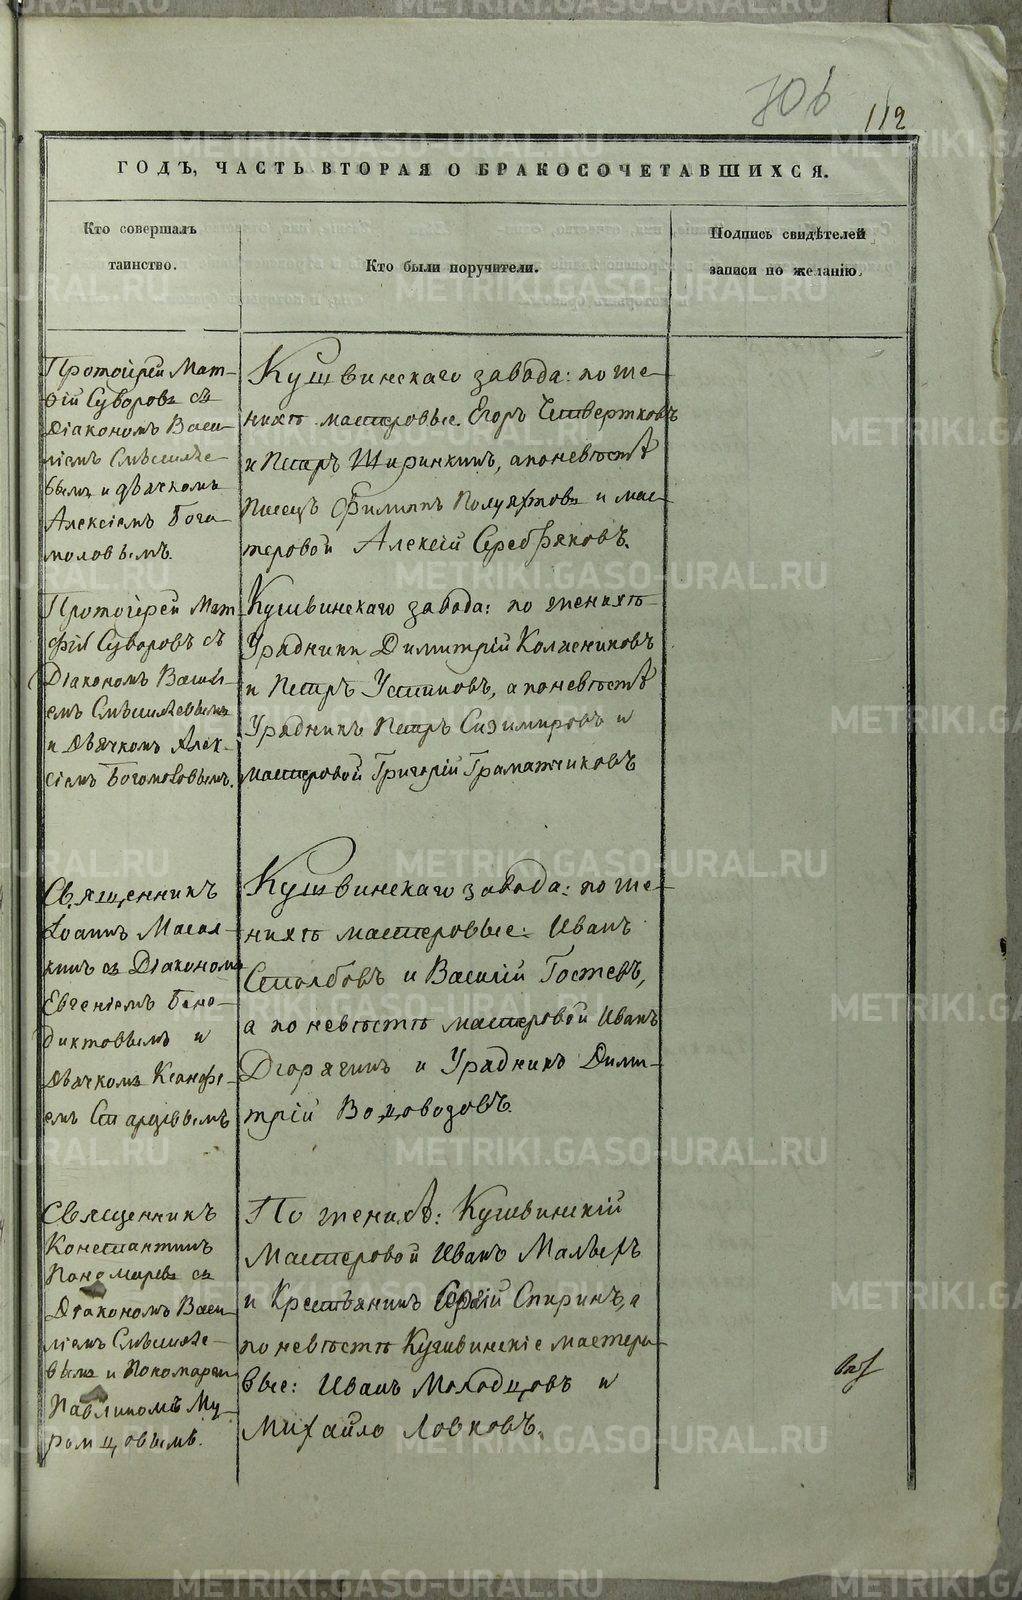 706
112
ГОДЪ, ЧАСТЬ ВТОРАЯ О БРАКОСОЧЕТАВШИХСЯ.
Кто совершалъ
таинство.
Кто были поручители.
Подпись свидѣтелей
записи по желанію.
Протоіерей Мат-
ѳій Суворовъ съ
Діакономъ Васи-
ліемъ Смышляе-
вымъ и дьячкомъ
Алексіемъ Бого-
моловымъ.
Кушвинскаго завода: по же-
нихѣ мастеровые. Егоръ Четвертковъ
и Петръ Ширинкинъ, а по невѣстѣ
Писецъ Филиппъ Полуяхтовъ и мас-
теровой Алексій Серебряковъ.
Протоіерей Мат
фій Суворовъ съ
Діакономъ Василі-
емъ Смышляевымъ
и Дьячкомъ Алек-
сіемъ Богомоловымъ.
Кушвинскаго завода: по женихѣ
Урядники Димитрій Колесниковъ
и Петръ Устиновъ, а по невѣстѣ
Урядникъ Петръ Сизимировъ и
мастеровой Григорій Граматчиковъ
Священникъ
Іоаннъ Масал-
кинъ съ Діакономъ
Евгеніемъ Бене-
диктовымъ и
Дьячкомъ Ксанфі-
емъ
Кушвинскаго завода: по же-
нихѣ мастеровые: Иванъ
Столбовъ и Василій Гостевъ,
а по невѣстѣ мастеровой Иванъ
и Урядникъ Дими-
трій Водовозовъ.
Священникъ
Константинъ
Пономаревъ съ
Діакономъ Васи-
ліемъ Смышляе-
вымъ и Пономаремъ
Павлиномъ Му-
ромцовымъ.
По женихѣ: Кушвинскій
Мастеровой Иванъ Малыхъ
и Крестьянинъ Сергій Спиринъ, а
по невѣстѣ Кушвинскіе мастеро-
вые: Иванъ Молодцовъ и
Михайло Ловковъ.
METRIKI.GASO-URAL.RU